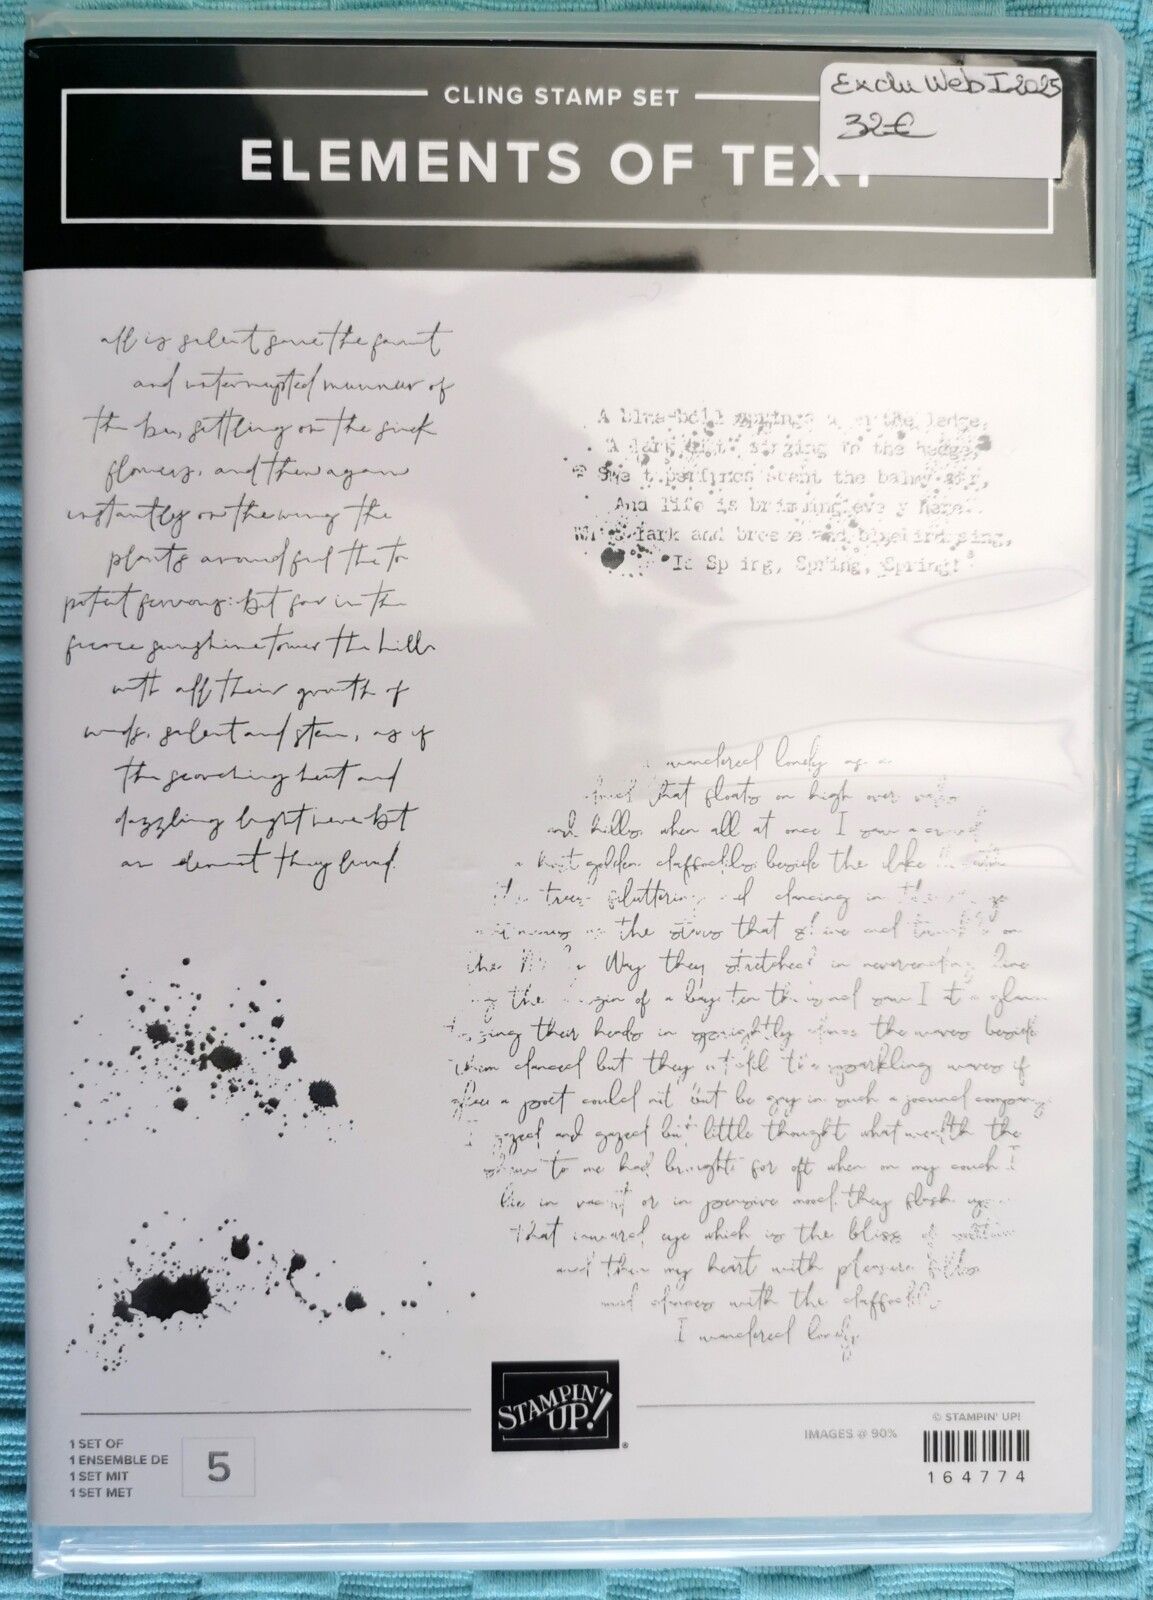 CLING STAMP SET
Exclu Web I 2025
32€
ELEMENTS OF TEXT
all is silent save the faint
and interrupted murmur of
the bee, settling on the sick
flowers, and then again
instantly on the wing the
plants around feel the to
potent fervour: but for in the
fierce sunshine tower the hills
with all their growth of
woods, silent and stern, as if
the scorching heat and
dazzling light were but
an element they loved.
A blue-bell springs upon the ledge,
A lark sits singing in the hedge;
Sweet perfumes scent the balmy air,
And life is brimming every where.
What lark and breeze and bluebird sing,
Is Spring, Spring, Spring!
wandered lonely as a
cloud that floats on high over vales
and hills when all at once I saw a crowd
a host golden daffodils beside the lake
the trees fluttering and dancing in the
as the stars that shine and twinkle on
the Milky Way they stretched in neverending line
the margin of a bay ten thousand saw I at a glance
tossing their heads in sprightly dance the waves beside
them danced but they outdid the sparkling waves if
glee a poet could not but be gay in such a jocund company
I gazed and gazed but little thought what wealth the
show to me had brought for oft when on my couch I
lie in vacant or in pensive mood they flash upon
that inward eye which is the bliss of
and then my heart with pleasure fills
and dances with the daffodils
I wandered lonely
STAMPIN' UP!
®
1 SET OF
1 ENSEMBLE DE
1 SET MIT
1 SET MET
5
IMAGES @ 90%
© STAMPIN' UP!
164774